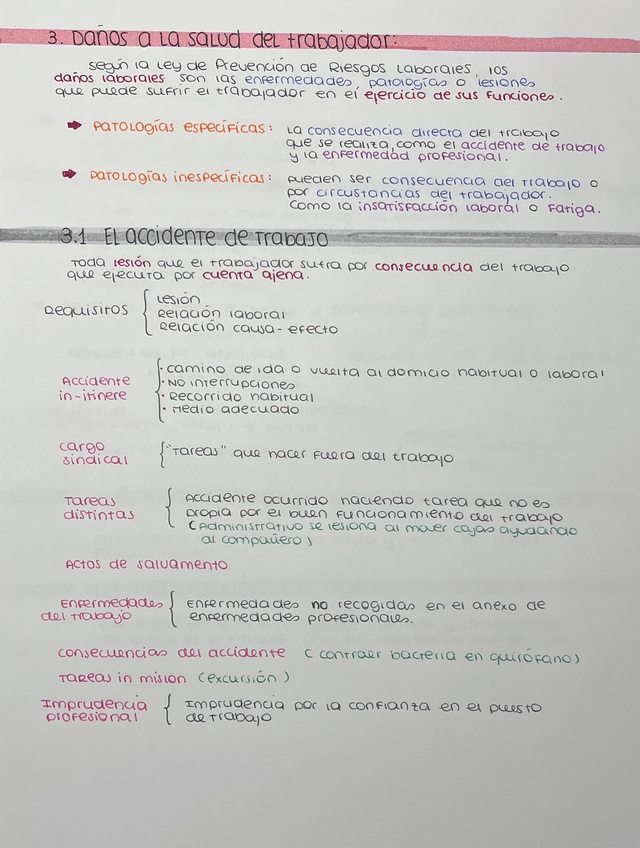 3. Daños a la salud del trabajador:
según la Ley de Prevención de Riesgos Laborales, los
daños laborales son las enfermedades, patologías o lesiones
que puede sufrir el trabajador en el ejercicio de sus funciones.
➡ Patologías específicas: La consecuencia directa del trabajo
que se realiza, como el accidente de trabajo
y la enfermedad profesional.
➡ Patologías inespecíficas: pueden ser consecuencia del trabajo o
por circustancias del trabajador.
Como la insatisfacción laboral o fatiga.
3.1 El accidente de trabajo
Toda lesión que el trabajador sufra por consecuencia del trabajo
que ejecuta por cuenta ajena.
Requisitos { Lesión
Relación laboral
Relación causa-efecto
Accidente in-itinere {
· camino de ida o vuelta al domicio habitual o laboral
· No interrupciones
· Recorrido habitual
· Medio adecuado
cargo sindical { "Tareas" que hacer fuera del trabajo
Tareas distintas {
Accidente ocurrido haciendo tarea que no es
propia por el buen funcionamiento del trabajo
(Administrativo se lesiona al mover cajas ayudando
al compañero)
Actos de salvamento
Enfermedades del trabajo {
Enfermedades no recogidas en el anexo de
enfermedades profesionales.
consecuencias del accidente (contraer bacteria en quirófano)
Tareas in mision (excursión)
Imprudencia profesional {
Imprudencia por la confianza en el puesto
de trabajo